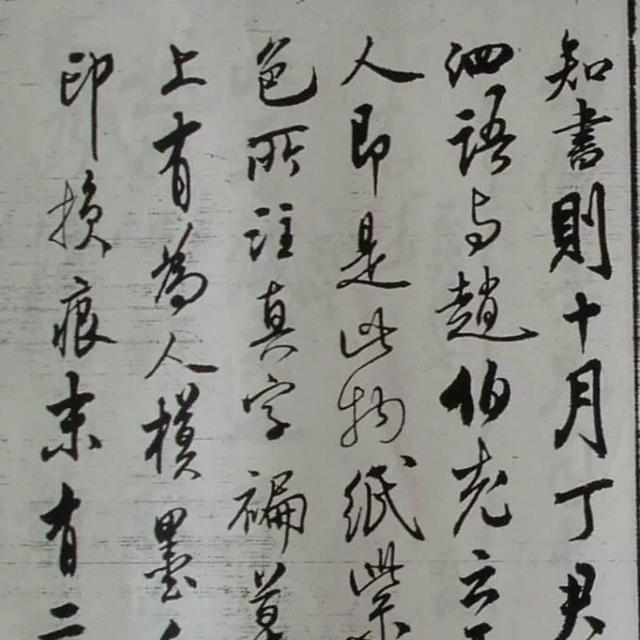 知書則十月丁
泗語与趙伯充云
人即是此物紙紫
色所註真字褊
上有為人模墨
印損痕末有二